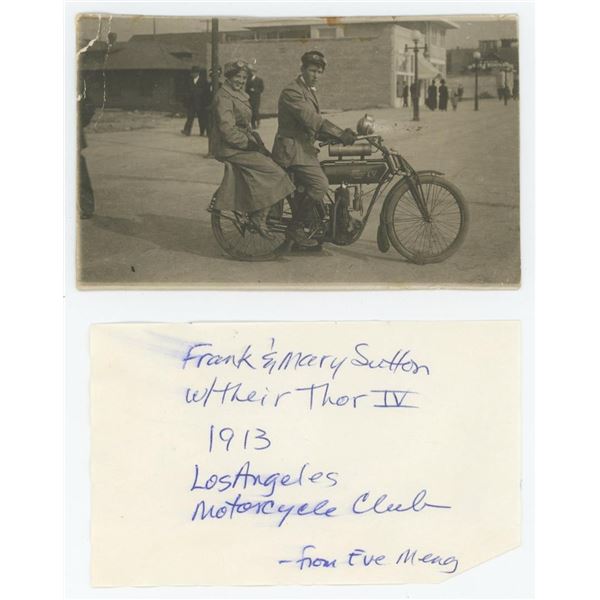 Frank & Mary Sutton
w/their Thor IV
1913
Los Angeles
Motorcycle Club
- from Eve Meng